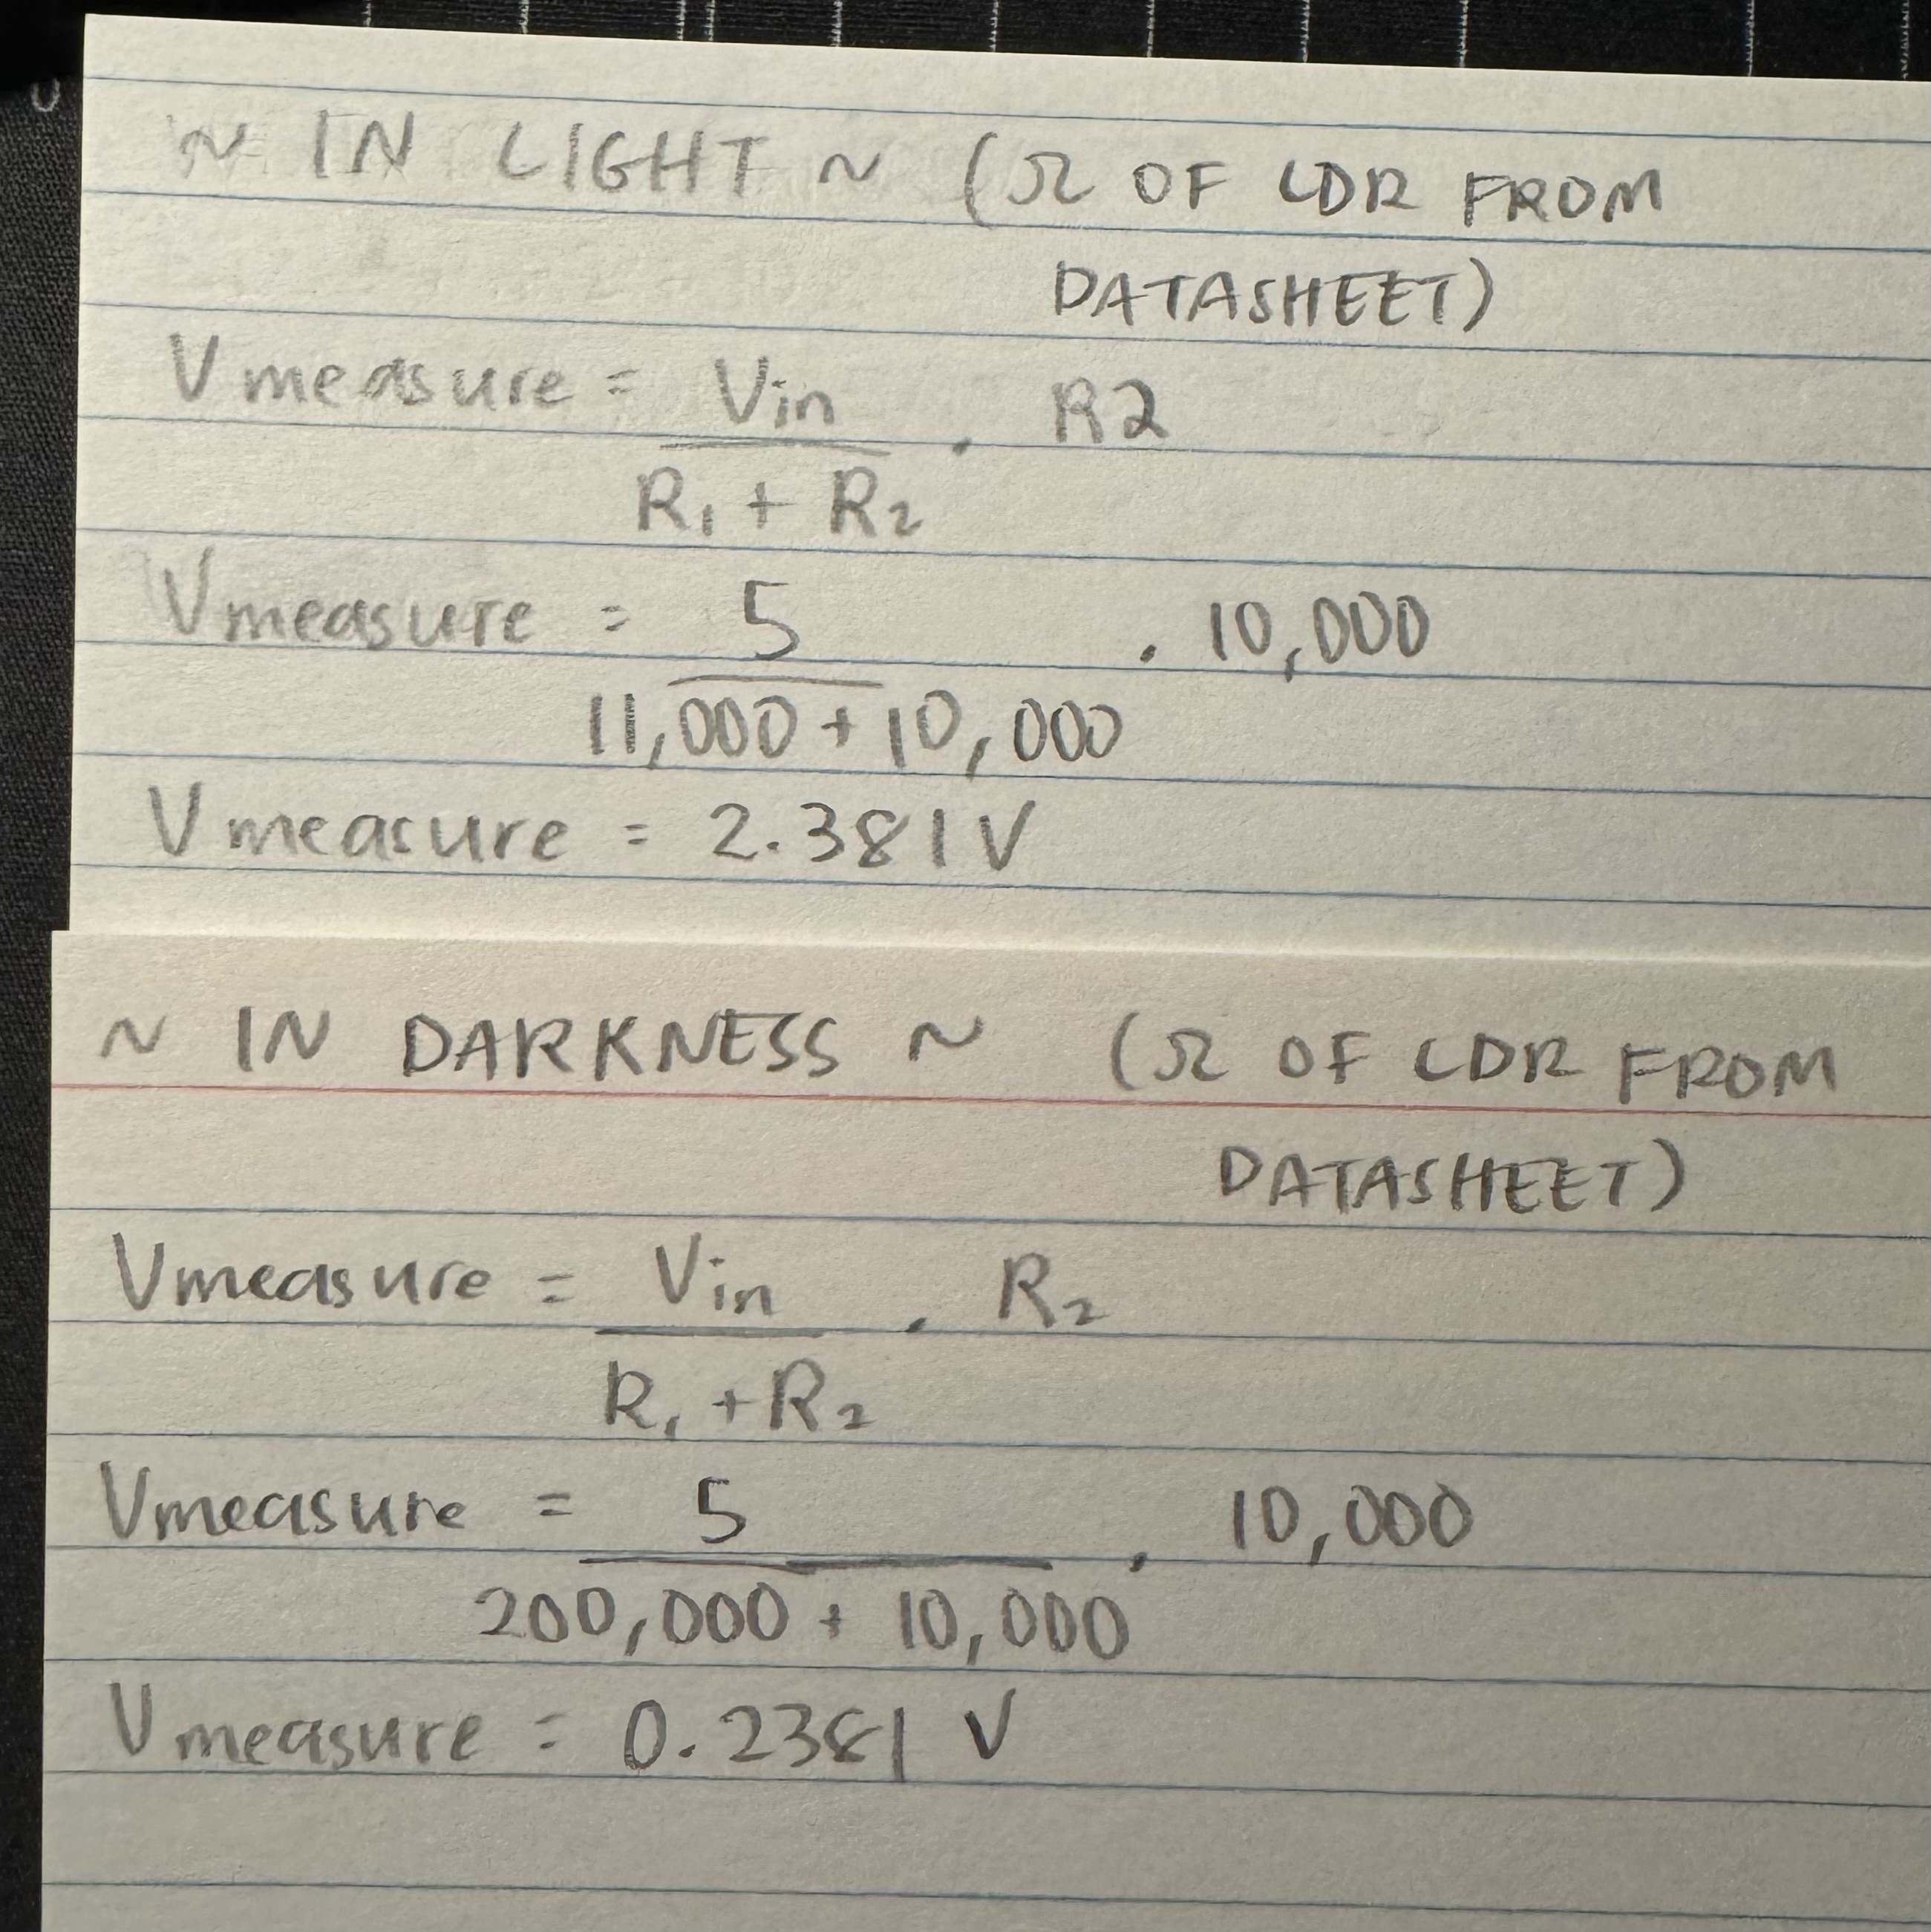 ~ IN LIGHT ~ (Ω OF LDR FROM
DATASHEET)
Vmeasure = Vin . R2
R₁ + R₂
Vmeasure = 5 . 10,000
11,000 + 10,000
Vmeasure = 2.381V
~ IN DARKNESS ~ (Ω OF LDR FROM
DATASHEET)
Vmeasure = Vin . R₂
R₁ + R₂
Vmeasure = 5 . 10,000
200,000 + 10,000
Vmeasure = 0.2381 V